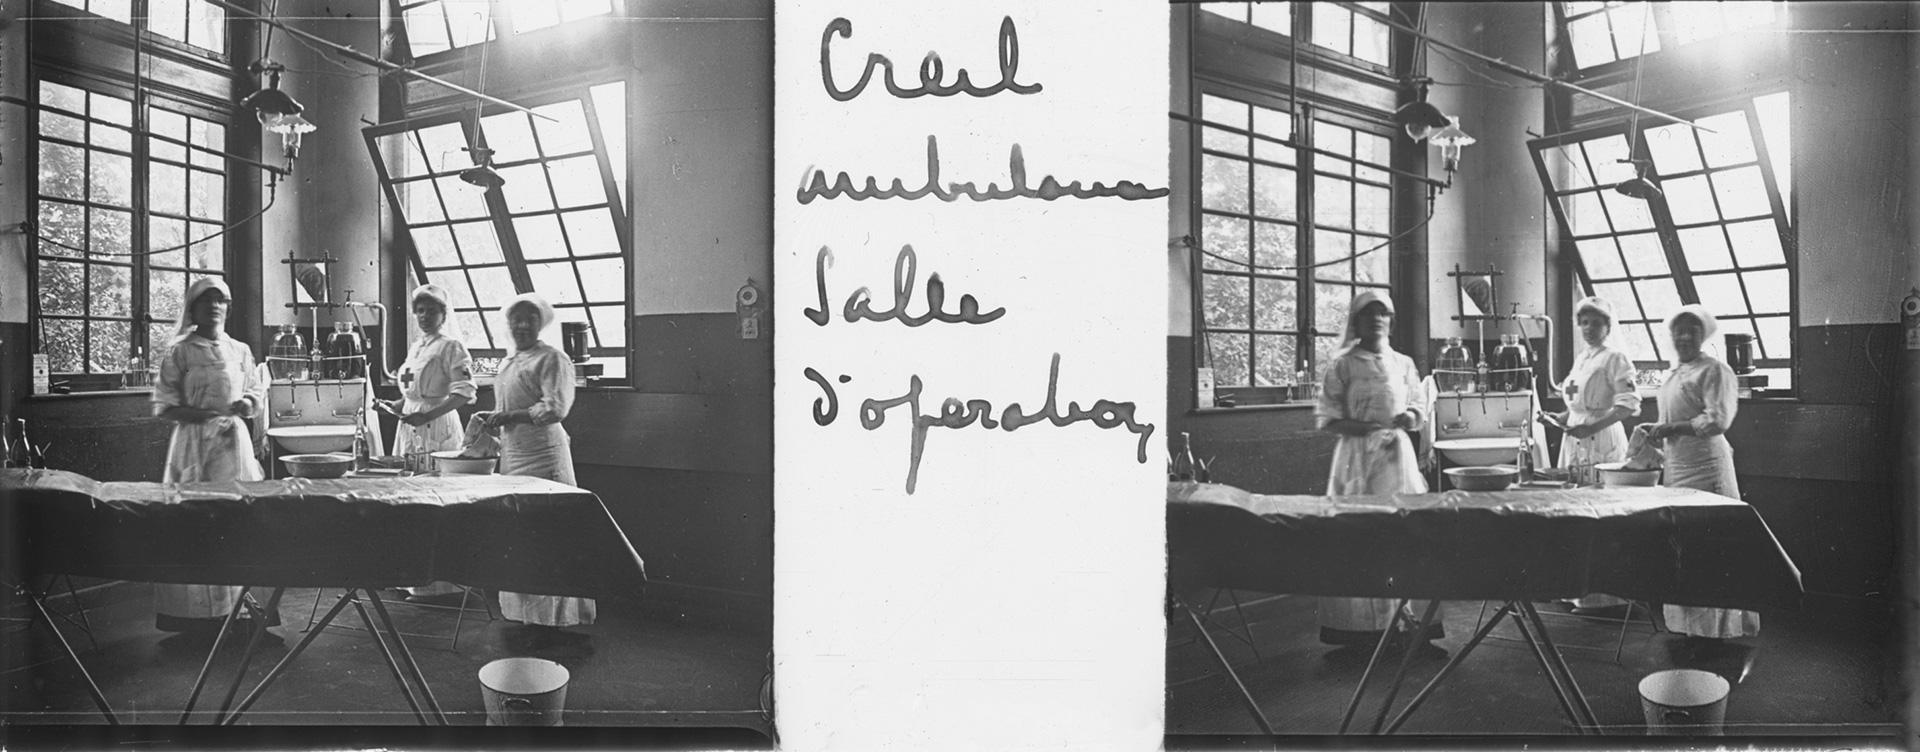 Creil
ambulance
Salle
d'operation